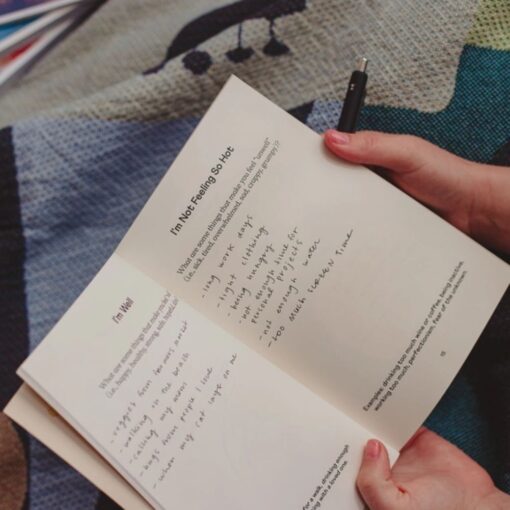 I'm Well
What are some things that make
(i.e., happy, healthy, strong, safe,
- veggies from farmers market
- walking on the beach
- calling my mom
- hugs from people I love
- when my cat lays on me
for a walk, drinking enough
with a loved one.
I'm Not Feeling So Hot
What are some things that make you feel "unwell"
(i.e., sick, tired, overwhelmed, sad, crappy, grumpy)?
- long work days
- tight clothing
- being hungry
- not enough time for
personal projects
- not enough water
- too much SCREEN TIME
Examples: drinking too much wine or coffee, being inactive,
working too much, perfectionism, fear of the unknown.